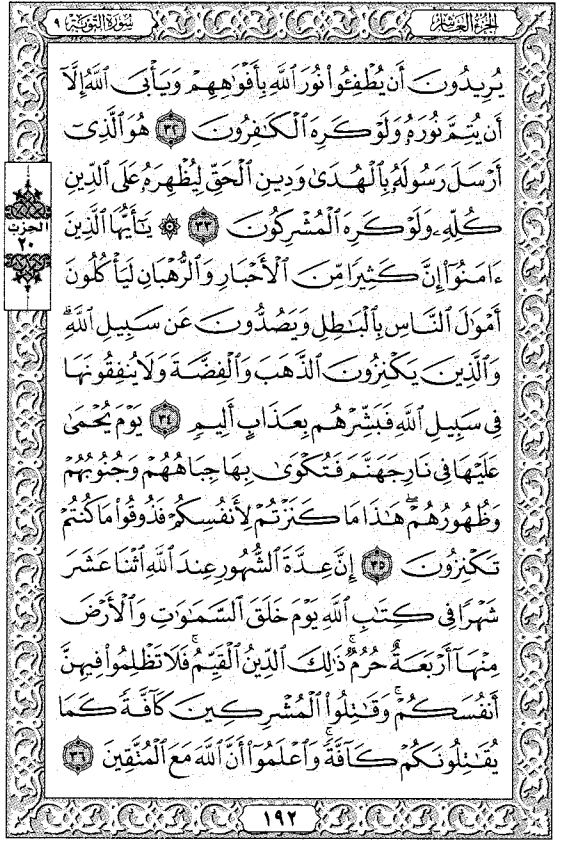 الجزء العاشر
سورة التوبة ٩
يُرِيدُونَ أَن يُطْفِـُٔوا۟ نُورَ ٱللَّهِ بِأَفْوَٰهِهِمْ وَيَأْبَى ٱللَّهُ إِلَّآ
أَن يُتِمَّ نُورَهُۥ وَلَوْ كَرِهَ ٱلْكَـٰفِرُونَ ٣٢ هُوَ ٱلَّذِىٓ
أَرْسَلَ رَسُولَهُۥ بِٱلْهُدَىٰ وَدِينِ ٱلْحَقِّ لِيُظْهِرَهُۥ عَلَى ٱلدِّينِ
كُلِّهِۦ وَلَوْ كَرِهَ ٱلْمُشْرِكُونَ ٣٣ ۞ يَـٰٓأَيُّهَا ٱلَّذِينَ
الحزب
٢٠
ءَامَنُوٓا۟ إِنَّ كَثِيرًا مِّنَ ٱلْأَحْبَارِ وَٱلرُّهْبَانِ لَيَأْكُلُونَ
أَمْوَٰلَ ٱلنَّاسِ بِٱلْبَـٰطِلِ وَيَصُدُّونَ عَن سَبِيلِ ٱللَّهِ ۗ
وَٱلَّذِينَ يَكْنِزُونَ ٱلذَّهَبَ وَٱلْفِضَّةَ وَلَا يُنفِقُونَهَا
فِى سَبِيلِ ٱللَّهِ فَبَشِّرْهُم بِعَذَابٍ أَلِيمٍ ٣٤ يَوْمَ يُحْمَىٰ
عَلَيْهَا فِى نَارِ جَهَنَّمَ فَتُكْوَىٰ بِهَا جِبَاهُهُمْ وَجُنُوبُهُمْ
وَظُهُورُهُمْ ۖ هَـٰذَا مَا كَنَزْتُمْ لِأَنفُسِكُمْ فَذُوقُوا۟ مَا كُنتُمْ
تَكْنِزُونَ ٣٥ إِنَّ عِدَّةَ ٱلشُّهُورِ عِندَ ٱللَّهِ ٱثْنَا عَشَرَ
شَهْرًا فِى كِتَـٰبِ ٱللَّهِ يَوْمَ خَلَقَ ٱلسَّمَـٰوَٰتِ وَٱلْأَرْضَ
مِنْهَآ أَرْبَعَةٌ حُرُمٌ ۚ ذَٰلِكَ ٱلدِّينُ ٱلْقَيِّمُ ۚ فَلَا تَظْلِمُوا۟ فِيهِنَّ
أَنفُسَكُمْ ۚ وَقَـٰتِلُوا۟ ٱلْمُشْرِكِينَ كَآفَّةً كَمَا
يُقَـٰتِلُونَكُمْ كَآفَّةً ۚ وَٱعْلَمُوٓا۟ أَنَّ ٱللَّهَ مَعَ ٱلْمُتَّقِينَ ٣٦
١٩٢